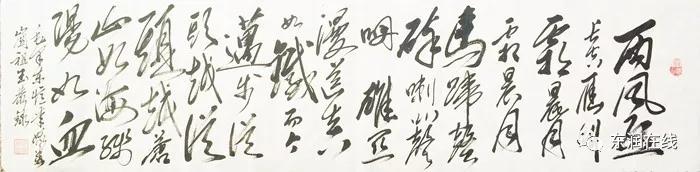 西风烈
长空雁叫
霜晨月
霜晨月
马蹄声
碎喇叭声
咽雄关
漫道真
如铁而今
迈步从
头越从
头越苍
山如海残
阳如血
毛泽东忆秦娥
东润在线